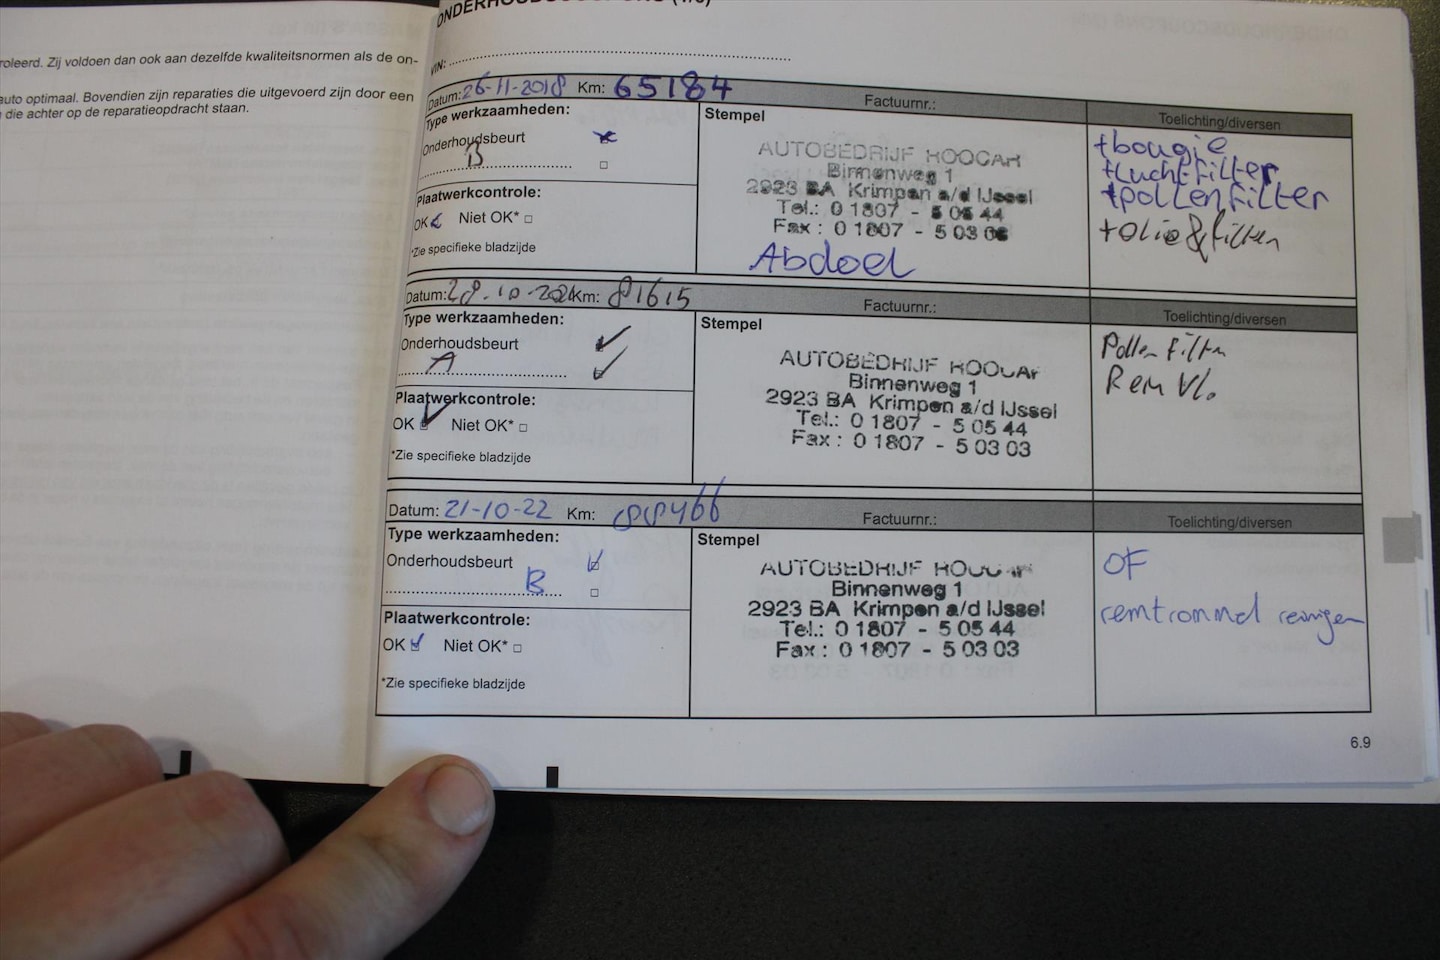 roleerd. Zij voldoen dan ook aan dezelfde kwaliteitsnormen als de on-
auto optimaal. Bovendien zijn reparaties die uitgevoerd zijn door een
die achter op de reparatieopdracht staan.
VIN:
Datum: 26-11-2018 Km: 65184 Factuurnr.: Toelichting/diversen
Type werkzaamheden:
Onderhoudsbeurt
B
Plaatwerkcontrole:
OK Niet OK*
*Zie specifieke bladzijde
Stempel
AUTOBEDRIJF HOOGAH
Binnenweg 1
2923 BA Krimpen a/d IJssel
Tel.: 0 1807 - 5 05 44
Fax : 0 1807 - 5 03 03
Abdoel
+bougie
+Luchtfilter
+pollenfilter
+olie & filter
Datum: 28-10-2021 Km: 81615 Factuurnr.: Toelichting/diversen
Type werkzaamheden:
Onderhoudsbeurt
A
Plaatwerkcontrole:
OK Niet OK*
*Zie specifieke bladzijde
Stempel
AUTOBEDRIJF
Binnenweg 1
2923 BA Krimpen a/d IJssel
Tel.: 0 1807 - 5 05 44
Fax : 0 1807 - 5 03 03
Pollen Filter
Rem Vl.
Datum: 21-10-22 Km: 88466 Factuurnr.: Toelichting/diversen
Type werkzaamheden:
Onderhoudsbeurt
B
Plaatwerkcontrole:
OK Niet OK*
*Zie specifieke bladzijde
Stempel
AUTOBEDRIJF
Binnenweg 1
2923 BA Krimpen a/d IJssel
Tel.: 0 1807 - 5 05 44
Fax : 0 1807 - 5 03 03
OF
remtrommel reinigen
6.9